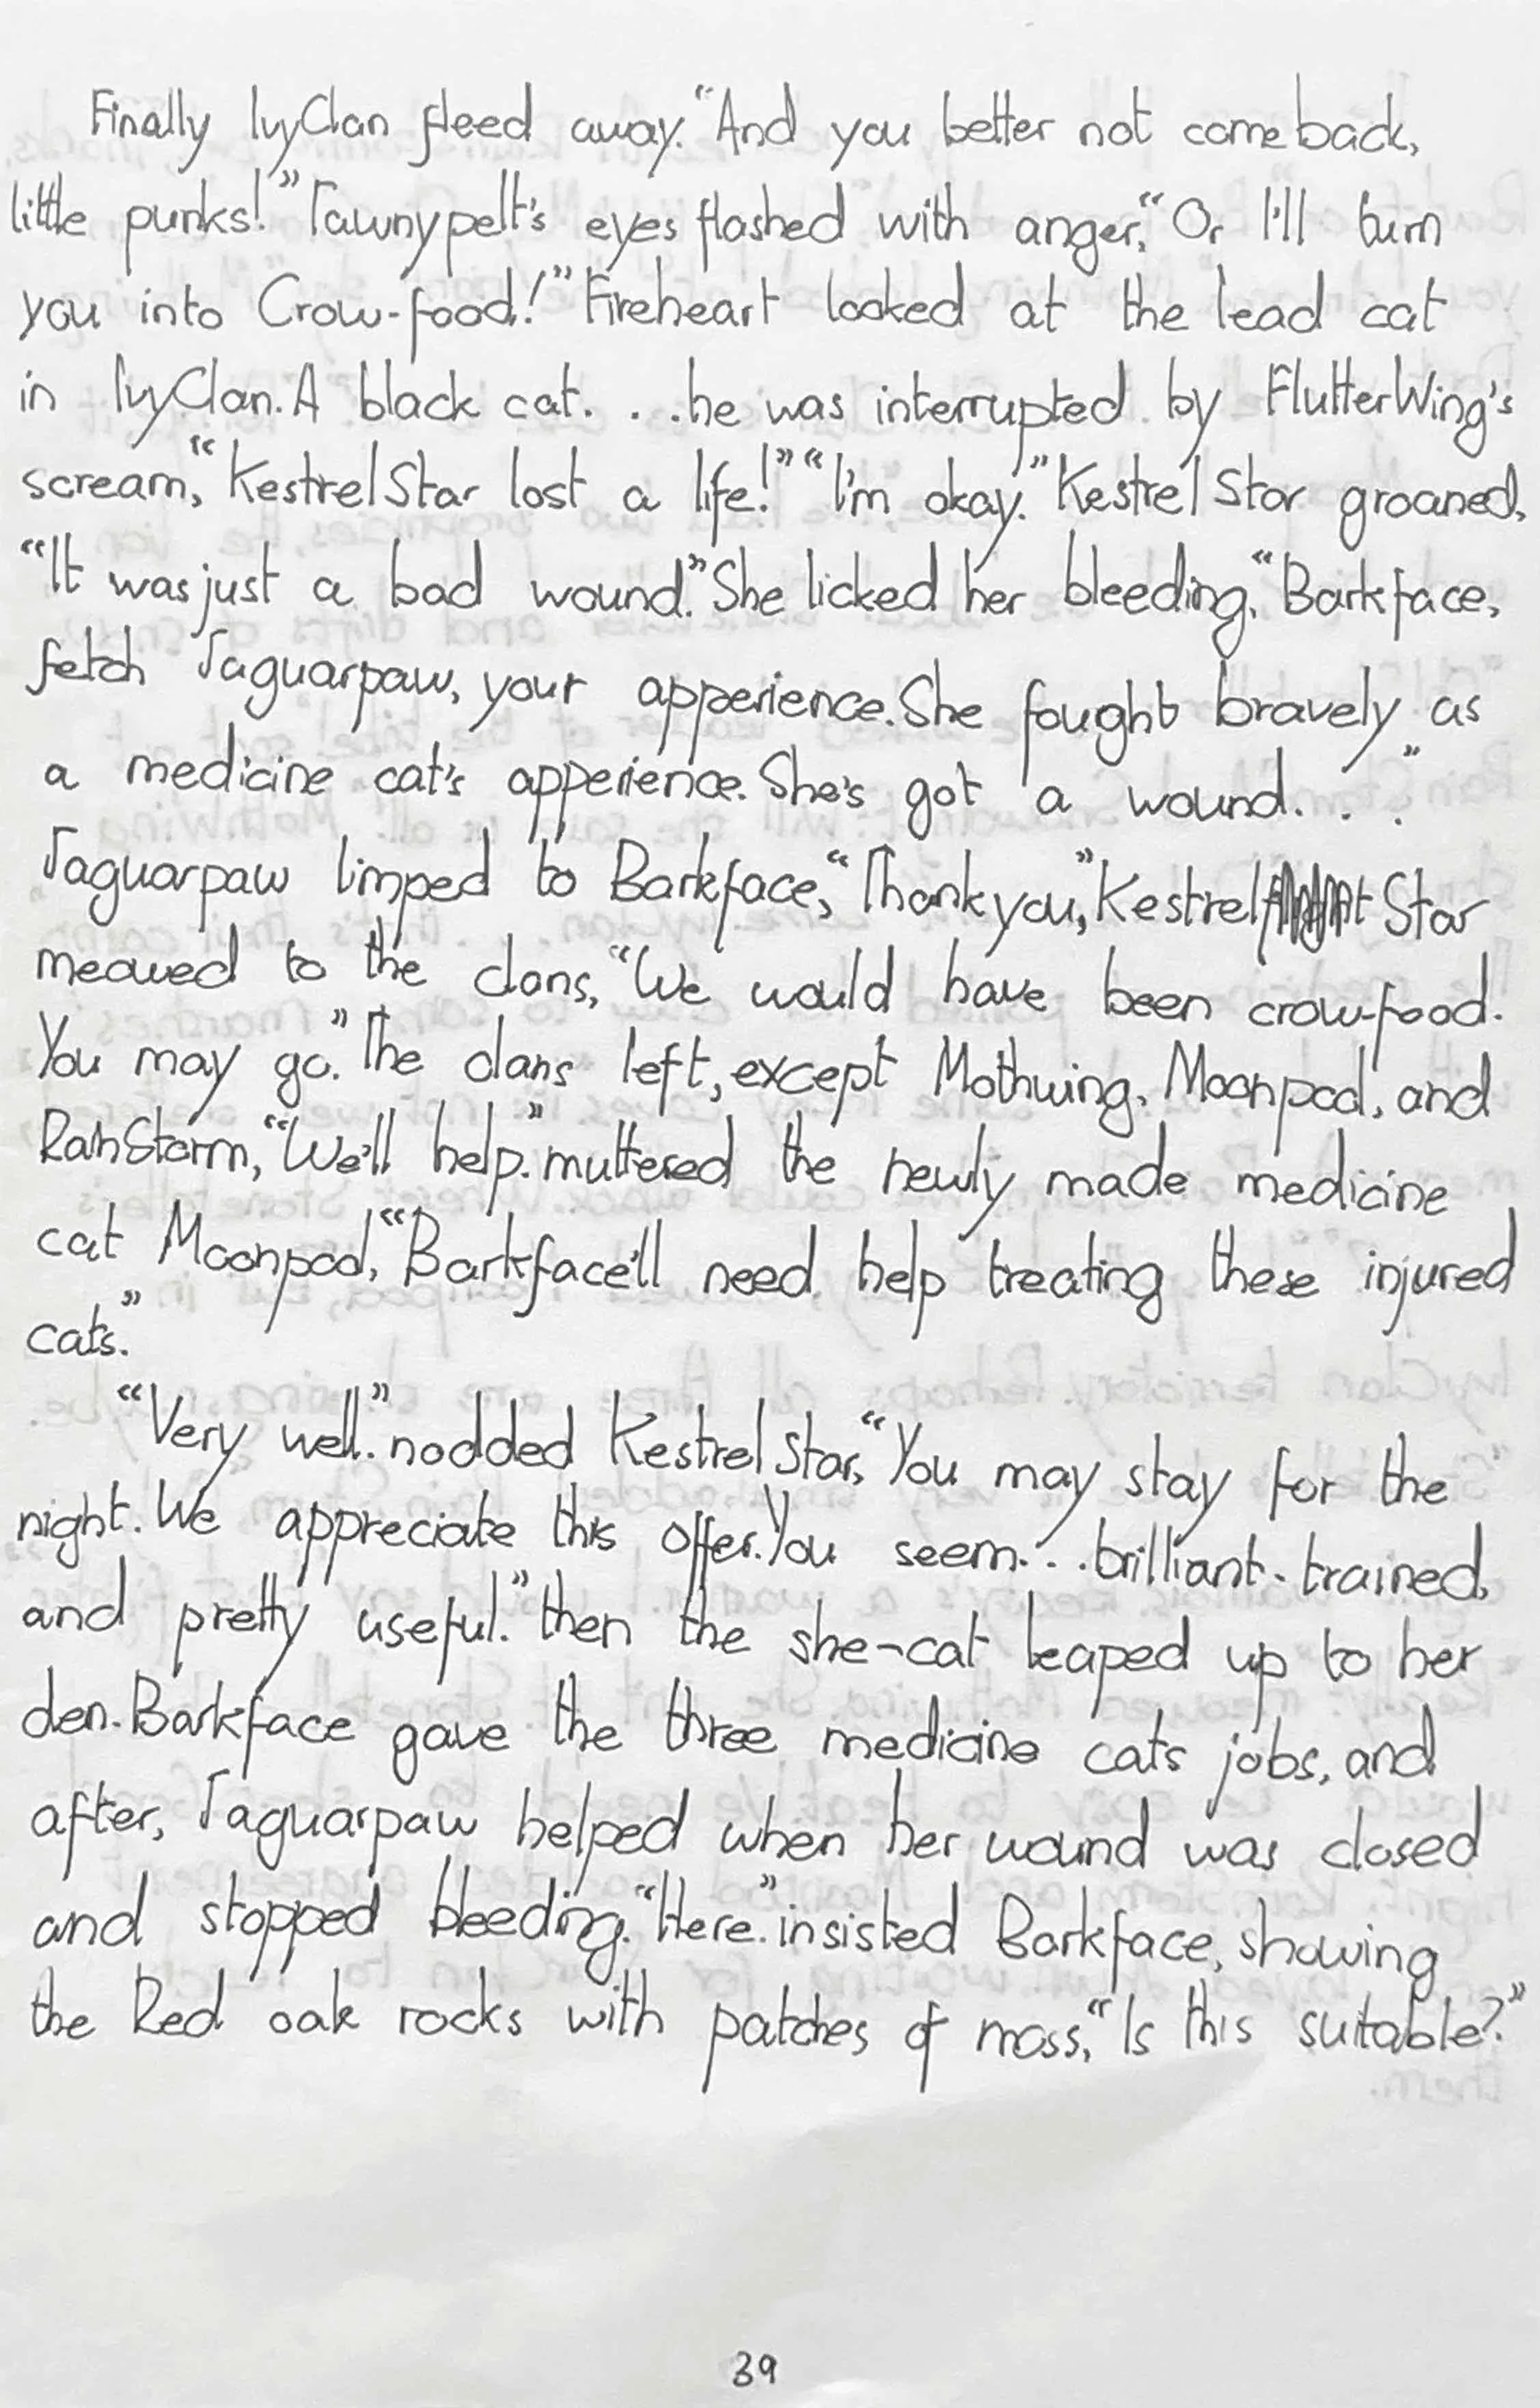 Finally IvyClan fleed away. "And you better not come back,
little punks!" Tawnypelt's eyes flashed with anger, "Or I'll turn
you into Crow-food!" Fireheart looked at the lead cat
in IvyClan. A black cat. . . he was interrupted by FlutterWing's
scream, "KestrelStar lost a life!" "I'm okay." KestrelStar groaned,
"It was just a bad wound." She licked her bleeding, "Barkface,
fetch Jaguarpaw, your apperience. She fought bravely as
a medicine cat's apperience. She's got a wound. . ."
Jaguarpaw limped to Barkface, "Thank you," Kestrel Star
meowed to the clans, "We would have been crow-food.
You may go." The clans left, except Mothwing, Moonpool, and
RainStorm, "We'll help." muttered the newly made medicine
cat Moonpool, "Barkface'll need help treating these injured
cats."
"Very well." nodded KestrelStar, "You may stay for the
night. We appreciate this offer. You seem. . . brilliant-trained,
and pretty useful." then the she-cat leaped up to her
den. Barkface gave the three medicine cats jobs, and
after, Jaguarpaw helped when her wound was closed
and stopped bleeding. "Here." insisted Barkface, showing
the Red oak rocks with patches of moss, "Is this suitable?"
39